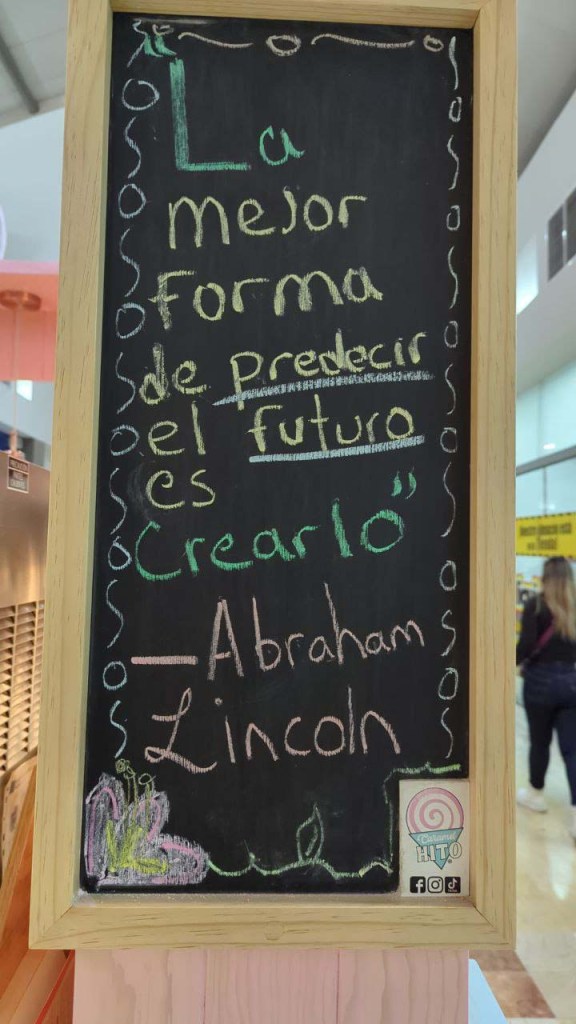 "La
mejor
forma
de predecir
el futuro
es
Crearlo"
—Abraham
Lincoln
Caramel
HITO